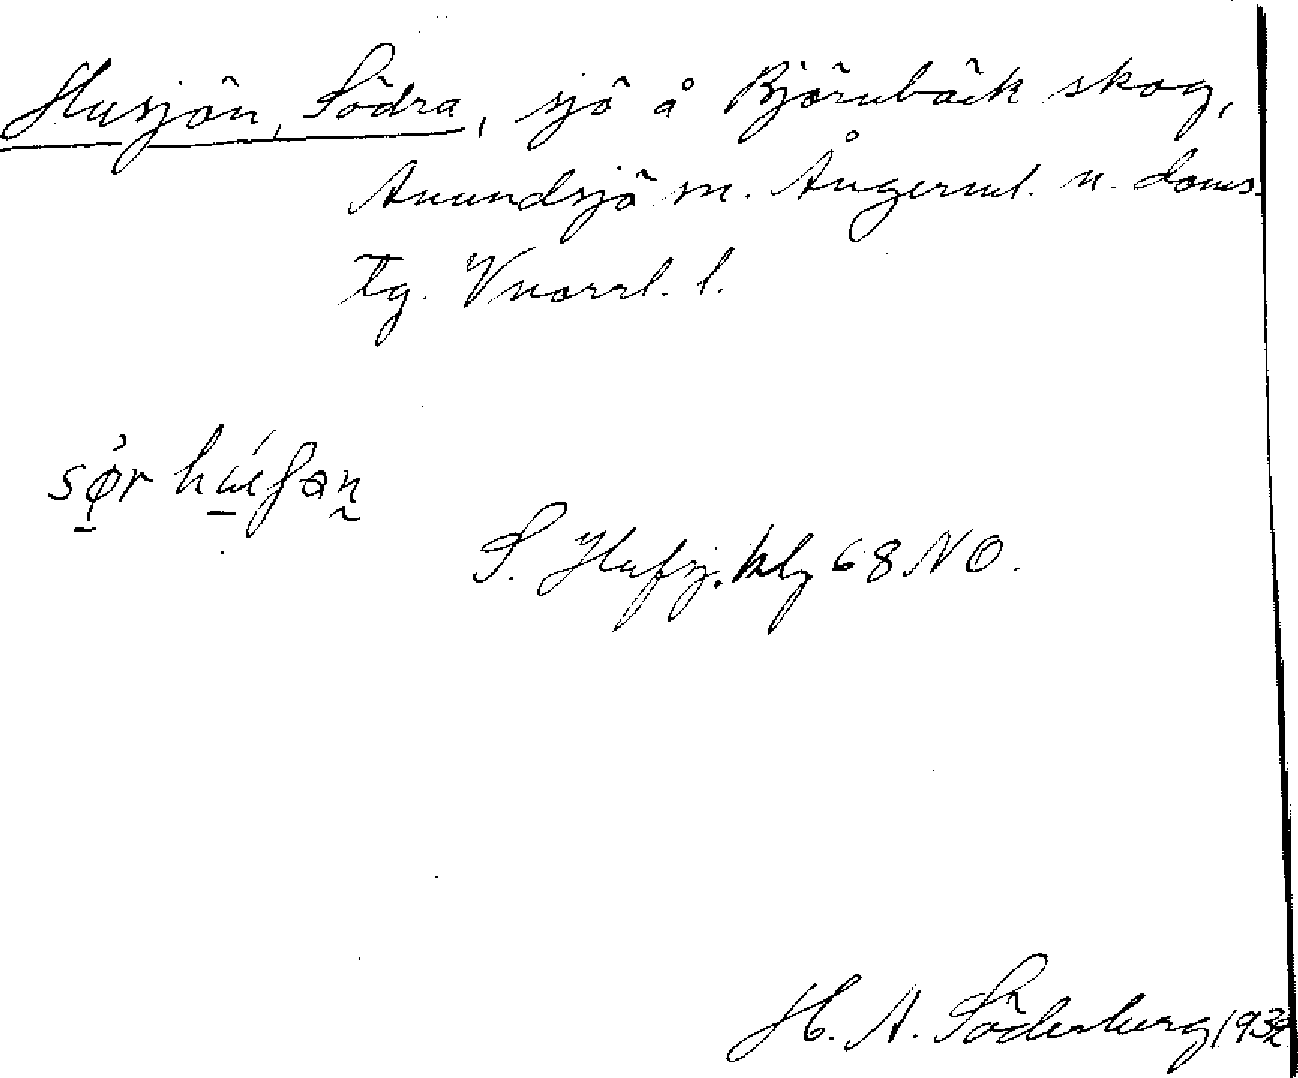 Husjön, Södra, sjö å Björnbäck skog,
Anundsjö sn. Ångerml. n. doms.
tg. Vnorrl. l.
sø̀r húʃan
S. Hussj. klg 68 NO.
H. A. Söderberg 1932